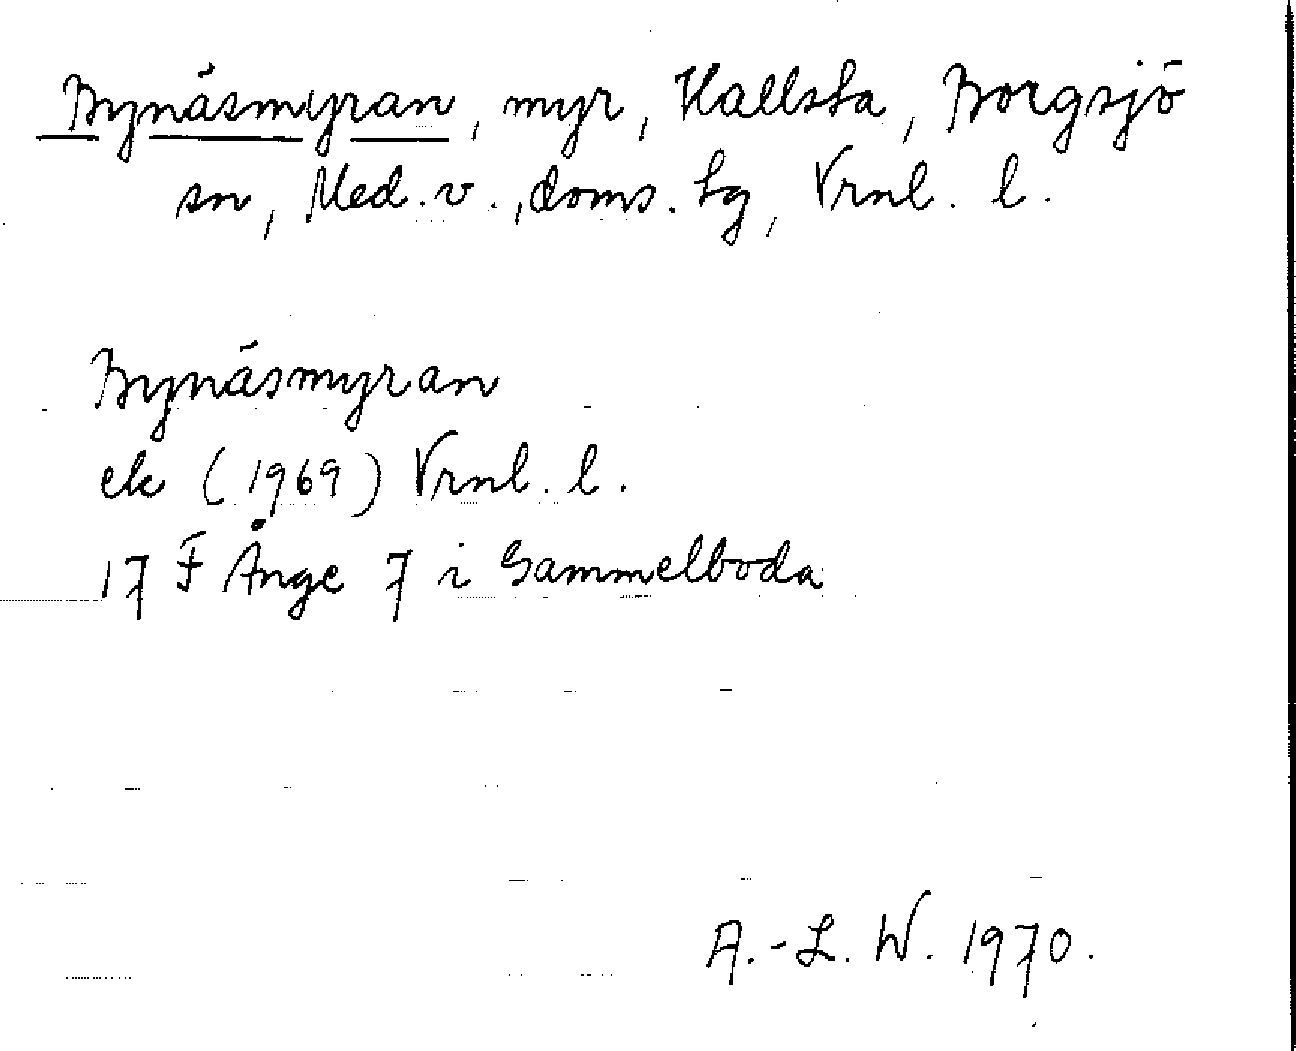 Bynäsmyran, myr, Kallsta, Borgsjö
sn, Med. v., doms. lg, Vrnl. l.
Bynäsmyran
ek (1969) Vrnl. l.
17 F Ånge 7 i Gammelboda
A.-L. W. 1970.